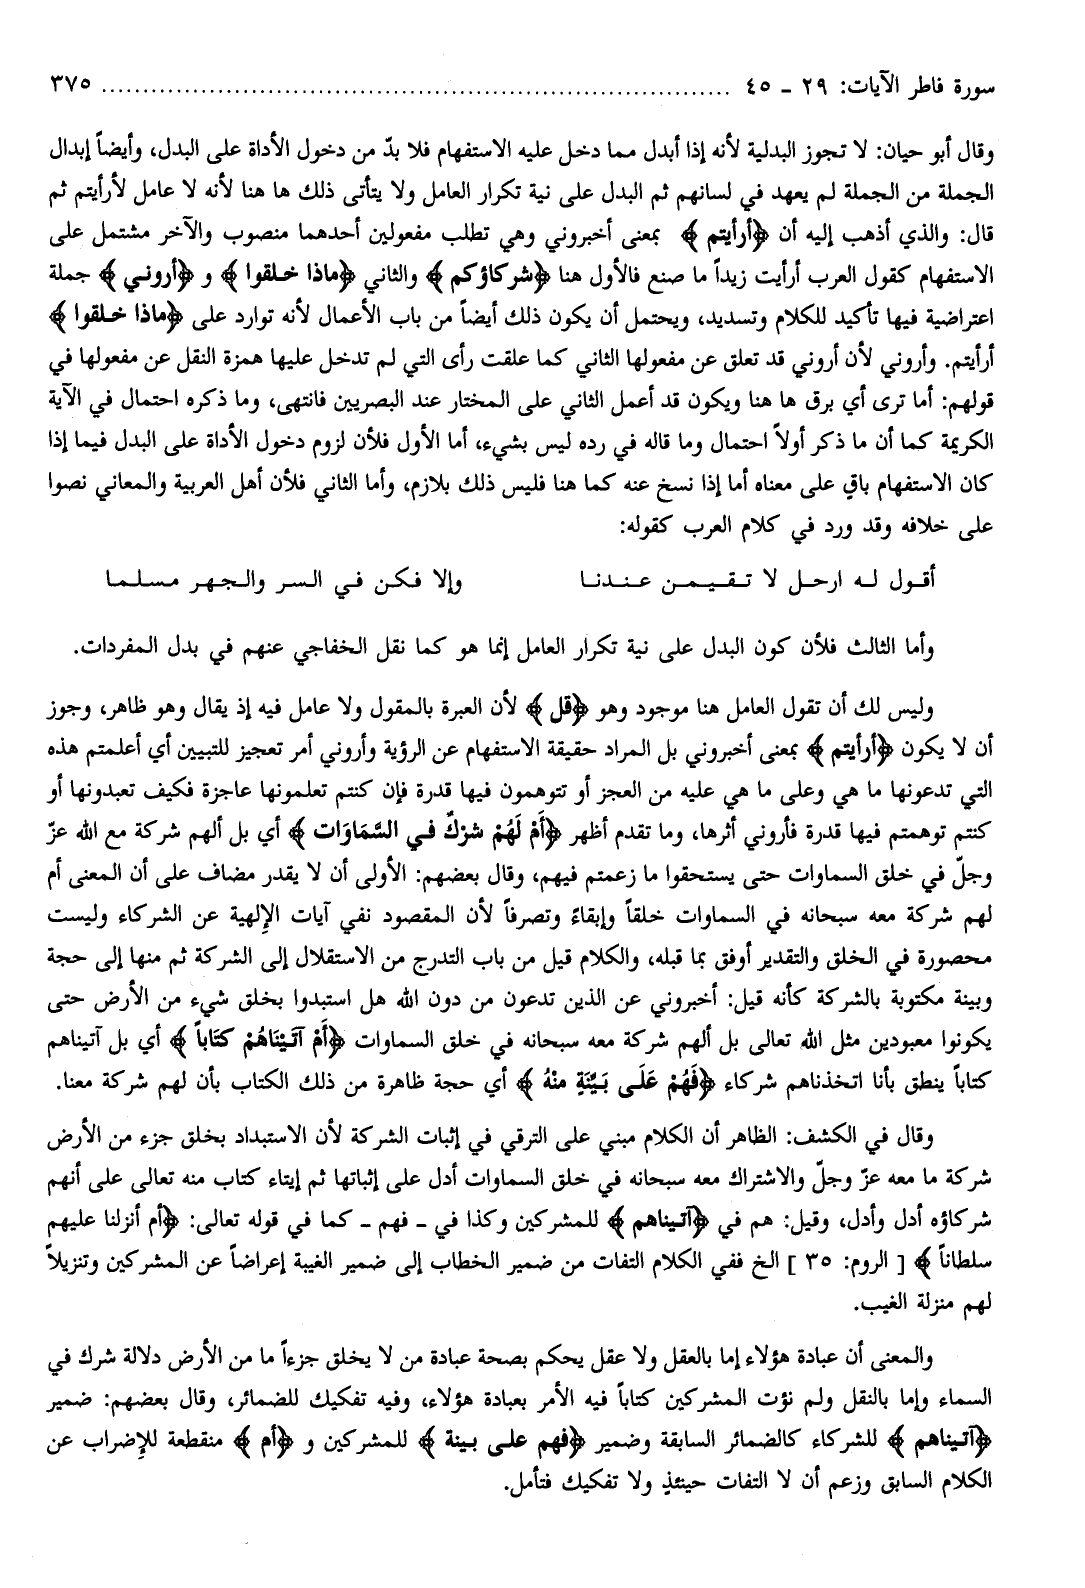 سورة فاطر الآيات: ٢٩ ـ ٤٥ ........................................................................ ٣٧٥
وقال أبو حيان: لا تجوز البدلية لأنه إذا أبدل مما دخل عليه الاستفهام فلا بدّ من دخول الأداة على البدل، وأيضاً إبدال
الجملة من الجملة لم يعهد في لسانهم ثم البدل على نية تكرار العامل ولا يتأتى ذلك ها هنا لأنه لا عامل لأرأيتم ثم
قال: والذي أذهب إليه أن ﴿أرأيتم﴾ بمعنى أخبروني وهي تطلب مفعولين أحدهما منصوب والآخر مشتمل على
الاستفهام كقول العرب أرأيت زيداً ما صنع فالأول هنا ﴿شركاؤكم﴾ والثاني ﴿ماذا خلقوا﴾ و ﴿أروني﴾ جملة
اعتراضية فيها تأكيد للكلام وتسديد، ويحتمل أن يكون ذلك أيضاً من باب الأعمال لأنه توارد على ﴿ماذا خلقوا﴾
أرأيتم. وأروني لأن أروني قد تعلق عن مفعولها الثاني كما علقت رأى التي لم تدخل عليها همزة النقل عن مفعولها في
قولهم: أما ترى أي برق ها هنا ويكون قد أعمل الثاني على المختار عند البصريين فانتهى، وما ذكره احتمال في الآية
الكريمة كما أن ما ذكر أولاً احتمال وما قاله في رده ليس بشيء، أما الأول فلأن لزوم دخول الأداة على البدل فيما إذا
كان الاستفهام باقٍ على معناه أما إذا نسخ عنه كما هنا فليس ذلك بلازم، وأما الثاني فلأن أهل العربية والمعاني نصوا
على خلافه وقد ورد في كلام العرب كقوله:
أقول له ارحل لا تقيمن عندنا وإلا فكن في السر والجهر مسلما
وأما الثالث فلأن كون البدل على نية تكرار العامل إنما هو كما نقل الخفاجي عنهم في بدل المفردات.
وليس لك أن تقول العامل هنا موجود وهو ﴿قل﴾ لأن العبرة بالمقول ولا عامل فيه إذ يقال وهو ظاهر، وجوز
أن لا يكون ﴿أرأيتم﴾ بمعنى أخبروني بل المراد حقيقة الاستفهام عن الرؤية وأروني أمر تعجيز للتبيين أي أعلمتم هذه
التي تدعونها ما هي وعلى ما هي عليه من العجز أو تتوهمون فيها قدرة فإن كنتم تعلمونها عاجزة فكيف تعبدونها أو
كنتم توهمتم فيها قدرة فأروني أثرها، وما تقدم أظهر ﴿أَمْ لَهُمْ شِرْكٌ في السَّمَاوَات﴾ أي بل ألهم شركة مع الله عزّ
وجلّ في خلق السماوات حتى يستحقوا ما زعمتم فيهم، وقال بعضهم: الأولى أن لا يقدر مضاف على أن المعنى أم
لهم شركة معه سبحانه في السماوات خلقاً وإبقاءً وتصرفاً لأن المقصود نفي آيات الإلهية عن الشركاء وليست
محصورة في الخلق والتقدير أوفق بما قبله، والكلام قيل من باب التدرج من الاستقلال إلى الشركة ثم منها إلى حجة
وبينة مكتوبة بالشركة كأنه قيل: أخبروني عن الذين تدعون من دون الله هل استبدوا بخلق شيء من الأرض حتى
يكونوا معبودين مثل الله تعالى بل ألهم شركة معه سبحانه في خلق السماوات ﴿أَمْ آتَيْنَاهُمْ كتَاباً﴾ أي بل آتيناهم
كتاباً ينطق بأنا اتخذناهم شركاء ﴿فَهُمْ عَلَى بَيِّنَةٍ منْهُ﴾ أي حجة ظاهرة من ذلك الكتاب بأن لهم شركة معنا.
وقال في الكشف: الظاهر أن الكلام مبني على الترقي في إثبات الشركة لأن الاستبداد بخلق جزء من الأرض
شركة ما معه عزّ وجلّ والاشتراك معه سبحانه في خلق السماوات أدل على إثباتها ثم إيتاء كتاب منه تعالى على أنهم
شركاؤه أدل وأدل، وقيل: هم في ﴿آتيناهم﴾ للمشركين وكذا في ـ فهم ـ كما في قوله تعالى: ﴿أم أنزلنا عليهم
سلطاناً﴾ [ الروم: ٣٥ ] الخ ففي الكلام التفات من ضمير الخطاب إلى ضمير الغيبة إعراضاً عن المشركين وتنزيلاً
لهم منزلة الغيب.
والمعنى أن عبادة هؤلاء إما بالعقل ولا عقل يحكم بصحة عبادة من لا يخلق جزءاً ما من الأرض دلالة شرك في
السماء وإما بالنقل ولم نؤت المشركين كتاباً فيه الأمر بعبادة هؤلاء، وفيه تفكيك للضمائر، وقال بعضهم: ضمير
﴿آتيناهم﴾ للشركاء كالضمائر السابقة وضمير ﴿فهم على بينة﴾ للمشركين و ﴿أم﴾ منقطعة للإضراب عن
الكلام السابق وزعم أن لا التفات حينئذٍ ولا تفكيك فتأمل.